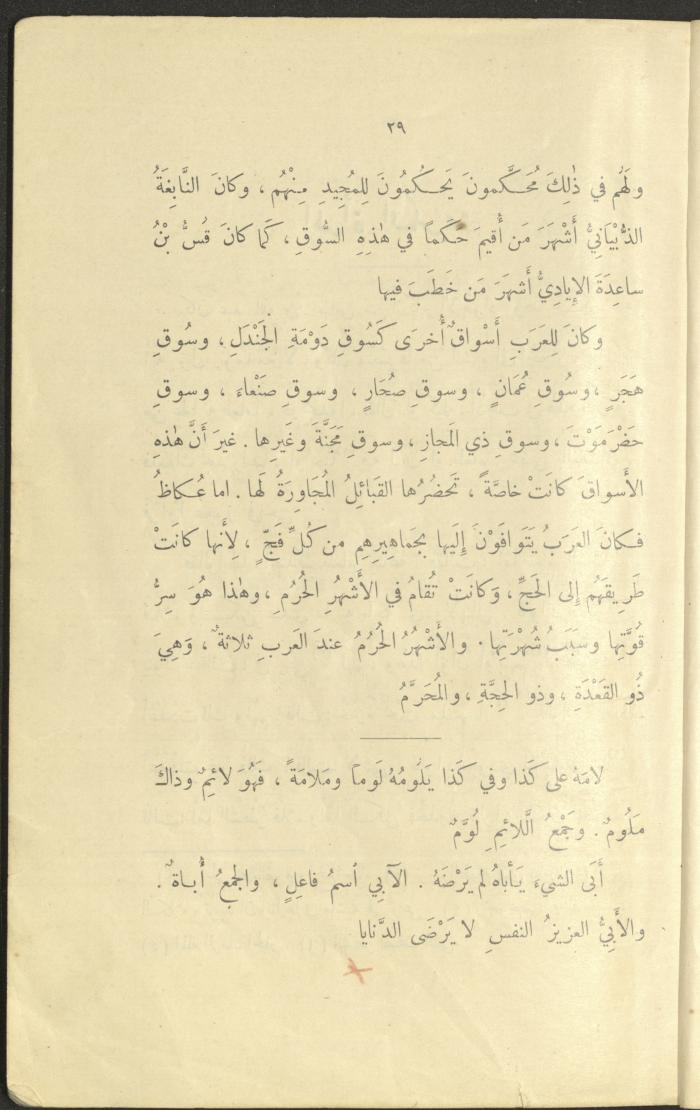 ٢٩
ولَهُم في ذٰلِكَ مُحَكَّمونَ يَحكُمُونَ لِلمُجِيدِ مِنْهُم ، وكانَ النَّابِغَةُ
الذُّبْيَانِيُّ أَشْهَرَ مَن أُقيمَ حَكَماً في هٰذِهِ السُّوقِ ، كَما كانَ قُسُّ بْنُ
ساعِدَةَ الإِيادِيُّ أَشهَرَ مَن خَطَبَ فيها
وكانَ لِلعَرَبِ أَسْواقٌ أُخرَى كَسُوقِ دَوْمَةِ الجَنْدَلِ ، وسُوقِ
هَجَرٍ ، وسُوقِ عُمَانٍ ، وسوقِ صُحَارٍ ، وسوقِ صَنْعاءَ ، وسوقِ
حَضْرَمَوْتَ ، وسوقِ ذي المَجازِ ، وسوقِ مَجَنَّةَ وغَيرِها . غيرَ أَنَّ هٰذهِ
الأَسواقَ كانَتْ خاصَّةً ، تَحضُرُها القَبائِلُ المُجَاوِرَةُ لَها . اما عُكاظُ
فكانَ العَرَبُ يَتَوافَوْنَ إِلَيها بِجَماهِيرِهِم من كُلِّ فَجٍّ ، لِأَنها كانَتْ
طَريقَهُم إِلى الحَجِّ ، وَكانَتْ تُقامُ في الأَشْهُرِ الحُرُمِ ، وهٰذا هُوَ سِرُّ
قُوَّتِها وسَبَبُ شُهْرَتِها . والأَشْهُرُ الحُرُمُ عندَ العَربِ ثلاثةٌ ، وَهِيَ
ذُو القَعْدَةِ ، وذو الحِجَّةِ ، والمُحَرَّمُ
لامَهُ على كَذا وفي كَذا يَلُومُهُ لَوماً ومَلامَةً ، فَهُوَ لائِمٌ وذاكَ
مَلُومٌ . وجَمْعُ الَّلائِمِ لُوَّمٌ
أَبَى الشيءَ يَأباهُ لم يَرْضَهُ . الآبِي ٱسمُ فاعلٍ ، والجمعُ أُباةٌ .
والأَبِيُّ العزيزُ النفسِ لا يَرْضَى الدَّنايا